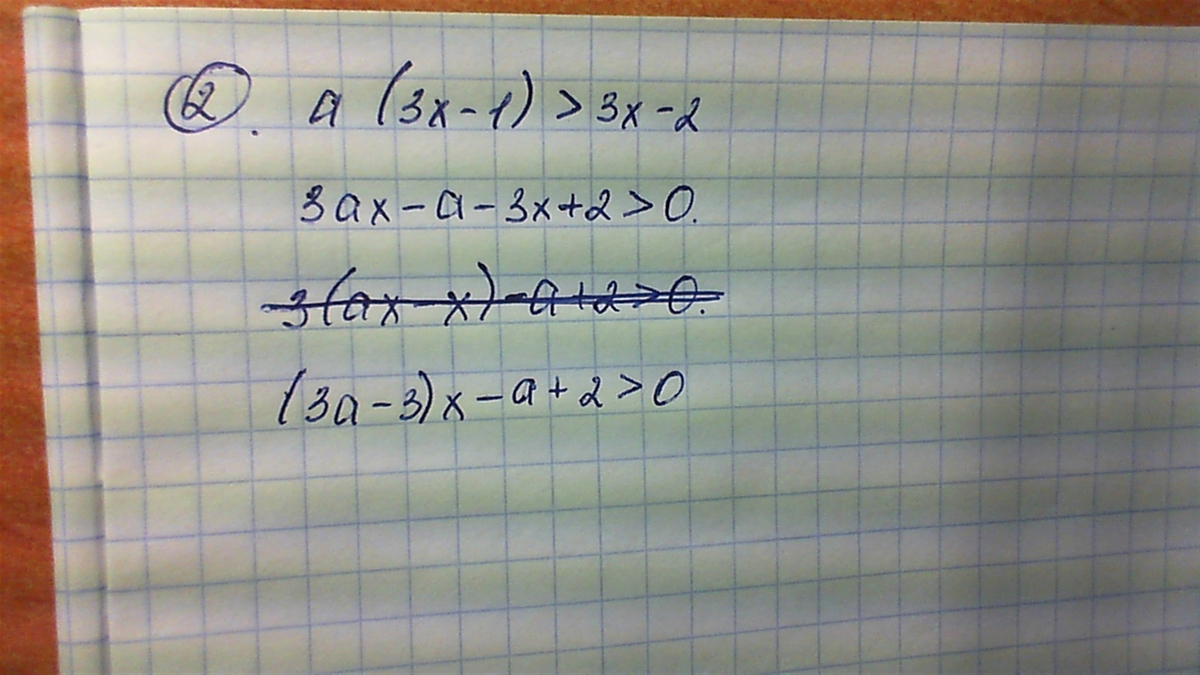 2. a (3x-1) > 3x-2
3ax-a-3x+2>0.
3(ax-x)-a+2>0.
(3a-3)x-a+2>0